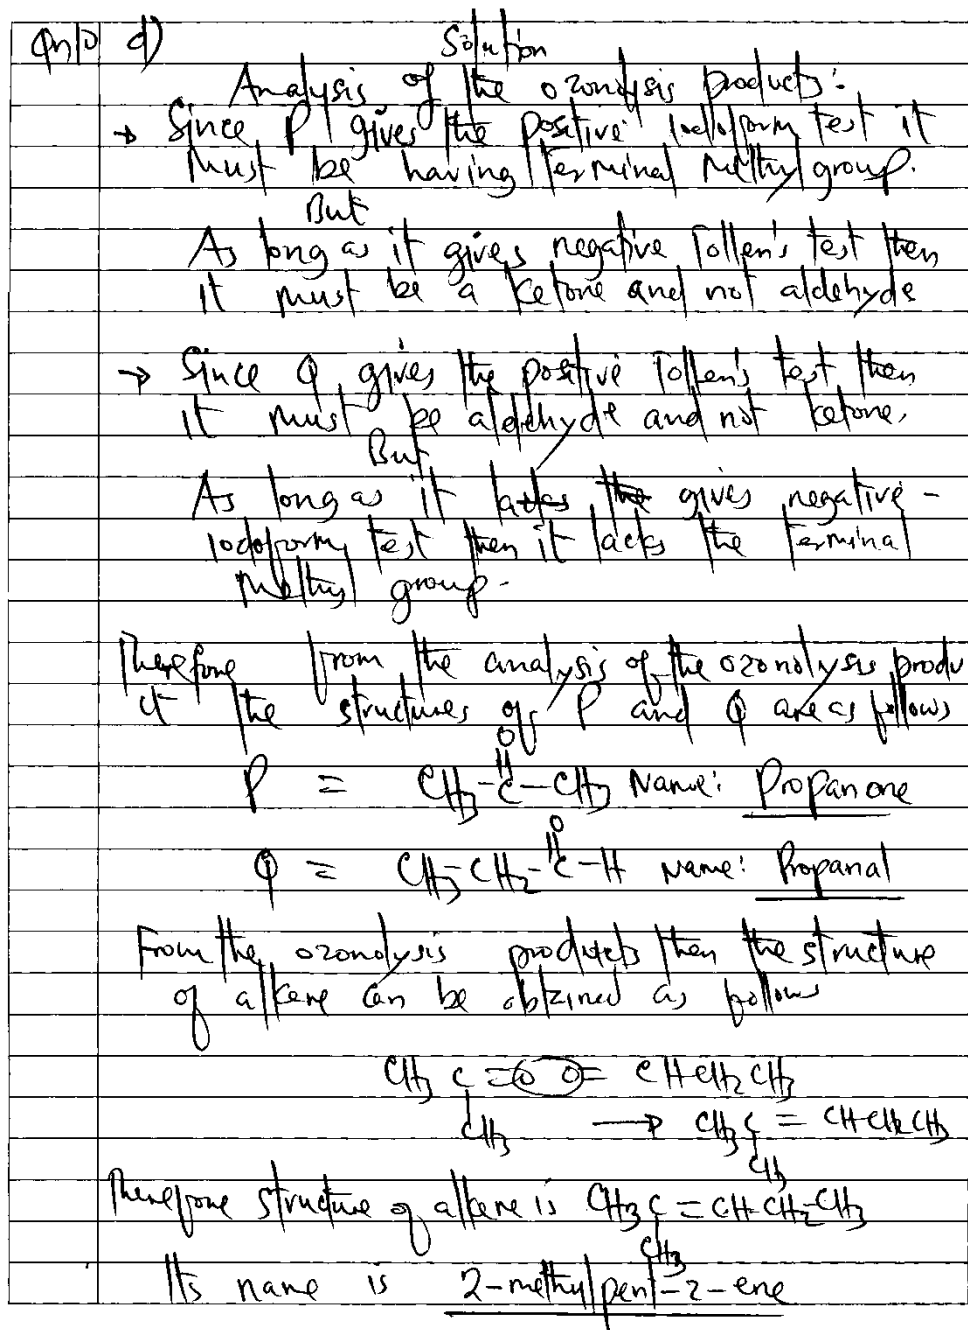 Qn 10 d) Solution
Analysis of the ozonolysis products:
→ Since P gives the positive Iodoform test it
must be having terminal methyl group.
But
As long as it gives negative Tollen's test then
it must be a ketone and not aldehyde
→ Since Q gives the positive Tollen's test then
it must be aldehyde and not ketone.
But
As long as it lacks the gives negative -
Iodoform test then it lacks the terminal
methyl group -
Therefore from the analysis of the ozonolysis produ
ct the structures of P and Q are as follows
O
P = CH3-C-CH3 Name: Propanone
O
Q = CH3-CH2-C-H Name: Propanal
From the ozonolysis products then the structure
of alkene can be obtained as follows
CH3 C =O O= CHCH2CH3
CH3 → CH3C = CHCH2CH3
CH3
Therefore structure of alkene is CH3C=CH-CH2-CH3
CH3
Its name is 2-methylpent-2-ene